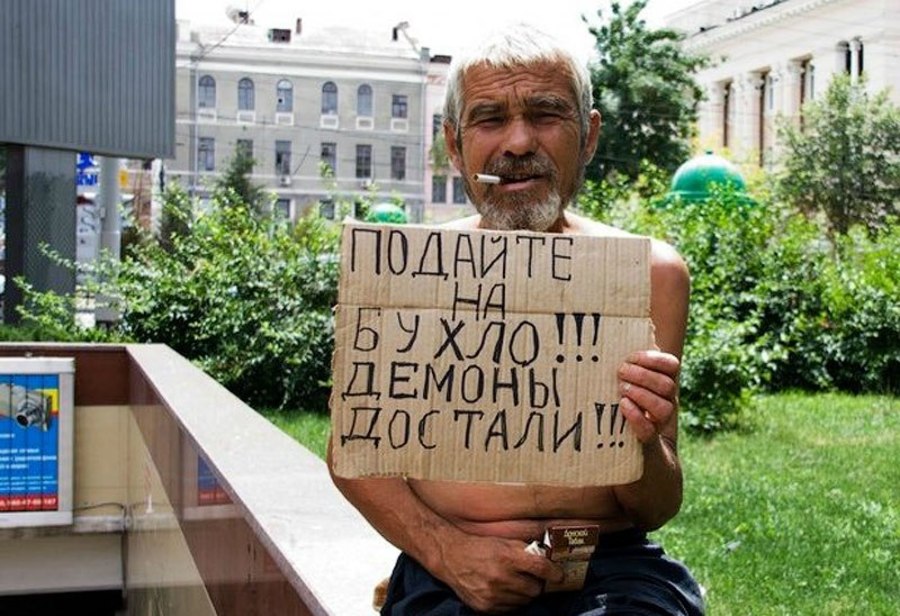 ПОДАЙТЕ
НА
БУХЛО!!!
ДЕМОНЫ
ДОСТАЛИ!!!
Донской
Табак